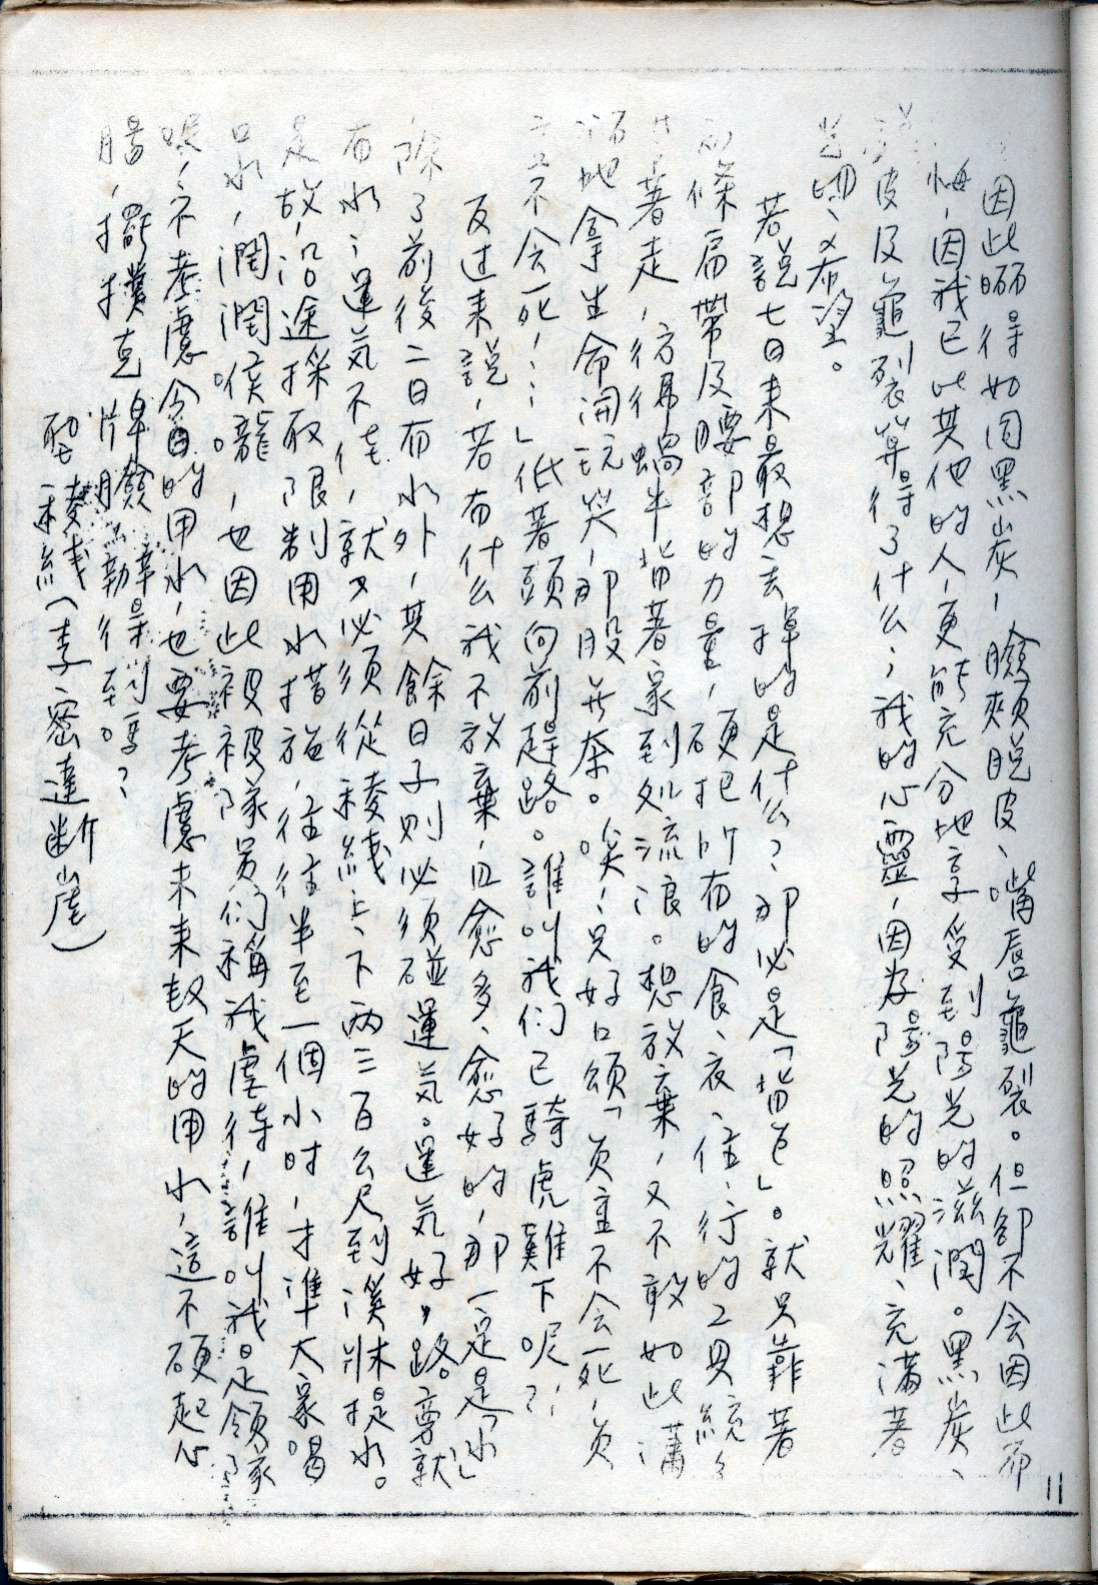 因此晒得如同黑炭，臉頰脫皮、嘴唇龜裂。但卻不会因此而
悔，因我已比其他的人，更能充分地享受到陽光的滋潤。黑炭、
皮及龜裂算得了什么；我的心靈，因为陽光的照耀、充滿著
切、希望。
若說七日来最想去掉的是什么？那必是「背包」。就只靠著
條扁帶及腰部的力量，硬把所有的食、衣、住、行的工具統統
著走，彷彿蝸牛背著家到处流浪。想放棄，又不敢如此瀟
地拿生命開玩笑，那股無奈。唉！只好口頌「負重不会死，負
重不会死，……」低著頭向前趕路。誰叫我们已騎虎難下呢？！
反过来說，若有什么我不放棄，且愈多、愈好的，那一定是「水」
除了前後二日有水外，其餘日子則必須碰運氣。運氣好，路旁就
有水；運氣不佳，就必須從稜綫上、下两三百公尺到溪牀提水。
是故，沿途採取限制用水措施，往往半至一個小时，才準大家喝
口水，潤潤侯嚨，也因此被被隊员们稱我虐待，誰叫我是領隊
呢，不考慮今日的用水，也要考慮未来数天的用水，這不硬起心
腸，擺撲克牌臉辦得到嗎？
稜綫（李·密達断崖）
11